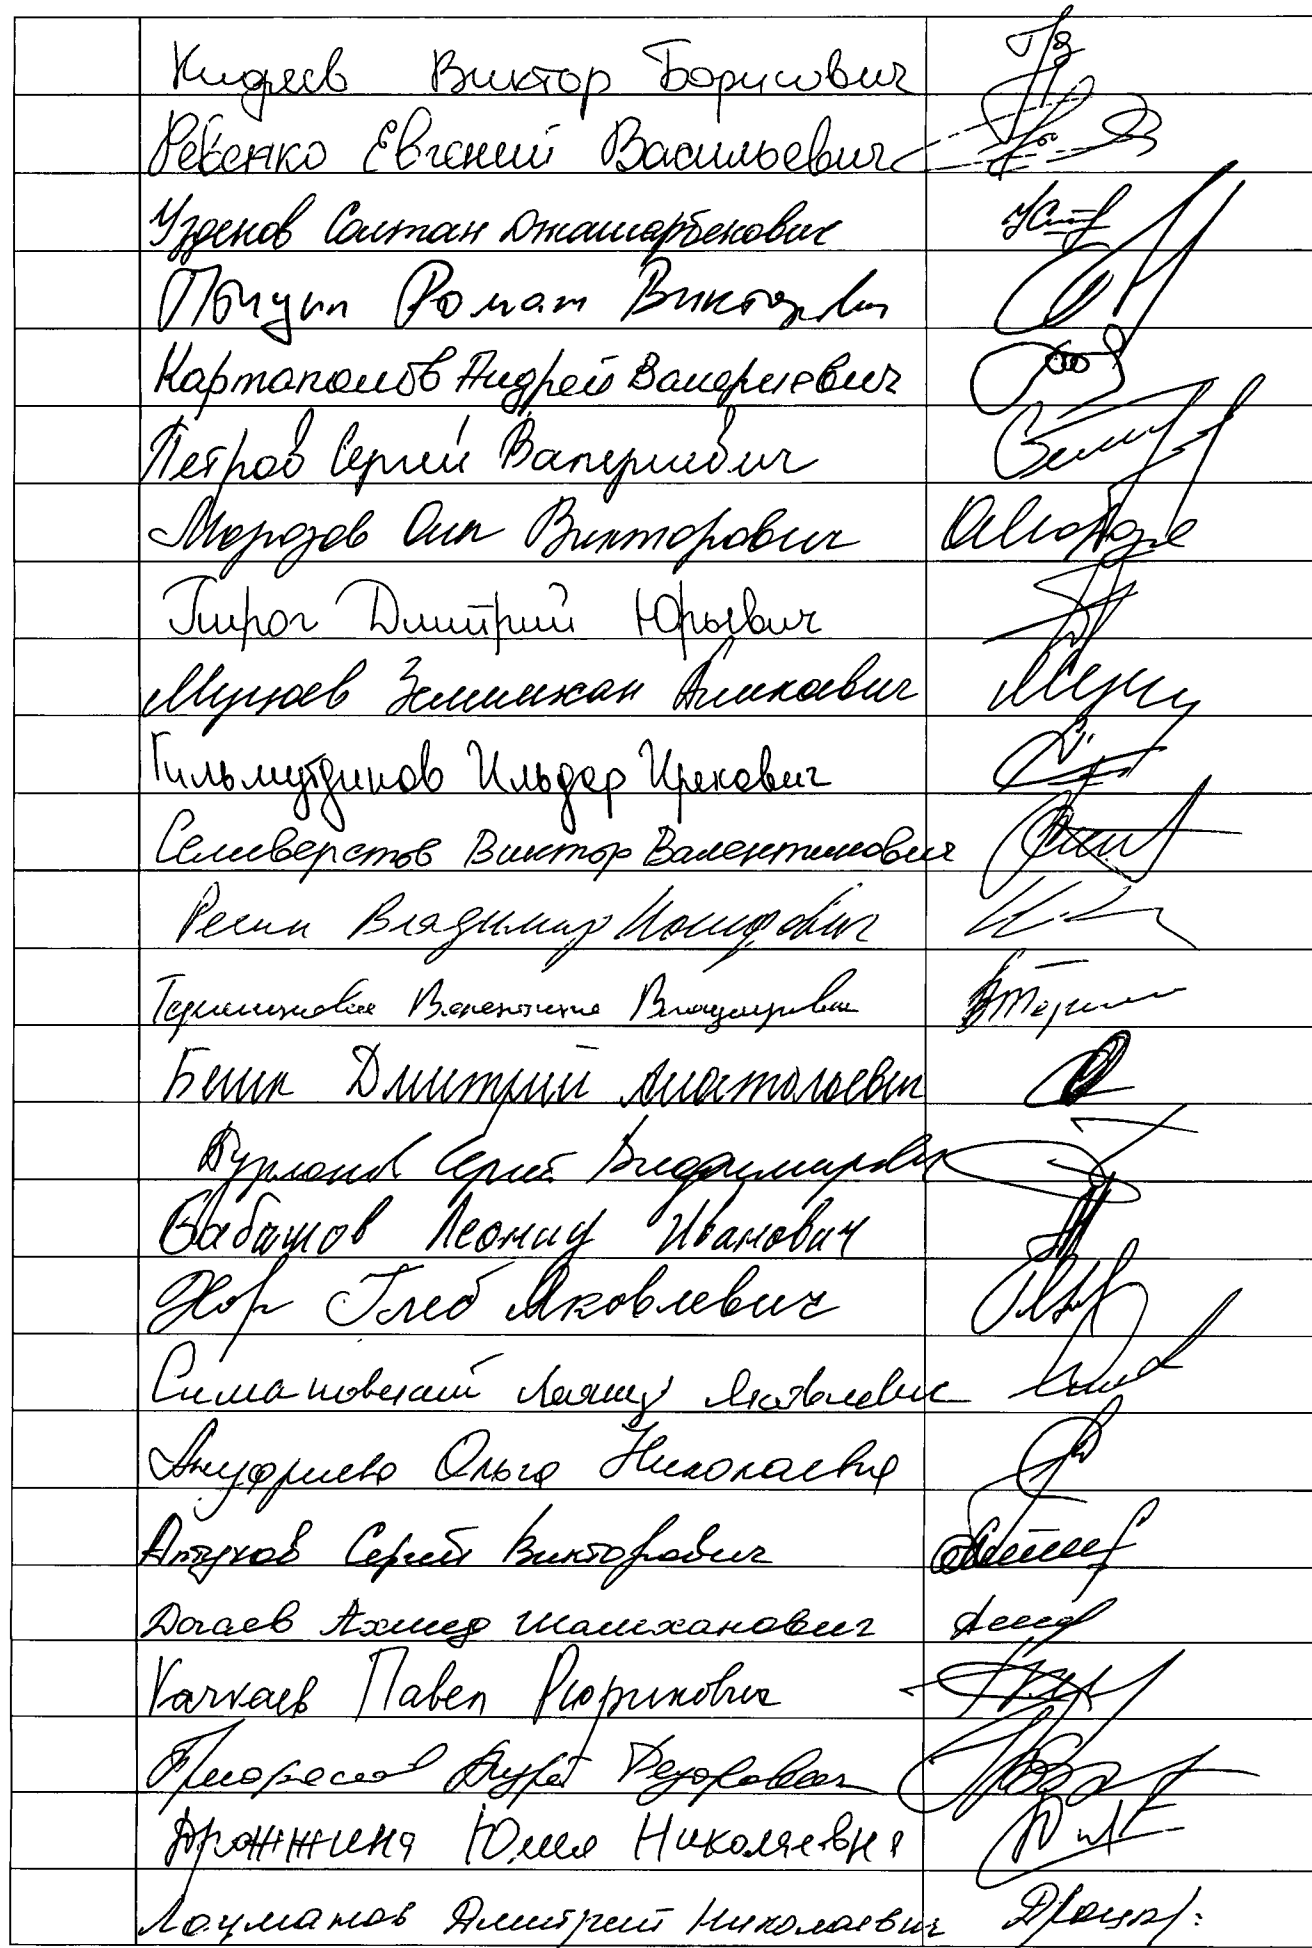 Кидяев Виктор Борисович
Ревенко Евгений Васильевич
Узденов Солтан Джашарбекович
Птицын Роман Викторович
Картаполов Андрей Валериевич
Петров Сергей Валериевич
Морозов Олег Викторович
Пирог Дмитрий Юрьевич
Муцоев Зелимхан Аликоевич
Гильмутдинов Ильдар Ирекович
Селиверстов Виктор Валентинович
Ресин Владимир Иосифович
Терешкова Валентина Владимировна
Бегин Дмитрий Анатольевич
Бурлаков Сергей Владимирович
Бабашов Леонид Иванович
Хор Глеб Яковлевич
Симановский Леонид Яковлевич
Ануфриева Ольга Николаевна
Алтухов Сергей Викторович
Догаев Ахмед Шамханович
Качкаев Павел Рюрикович
Андрей Федорович
Дрожжина Юлия Николаевна
Лоцманов Дмитрий Николаевич